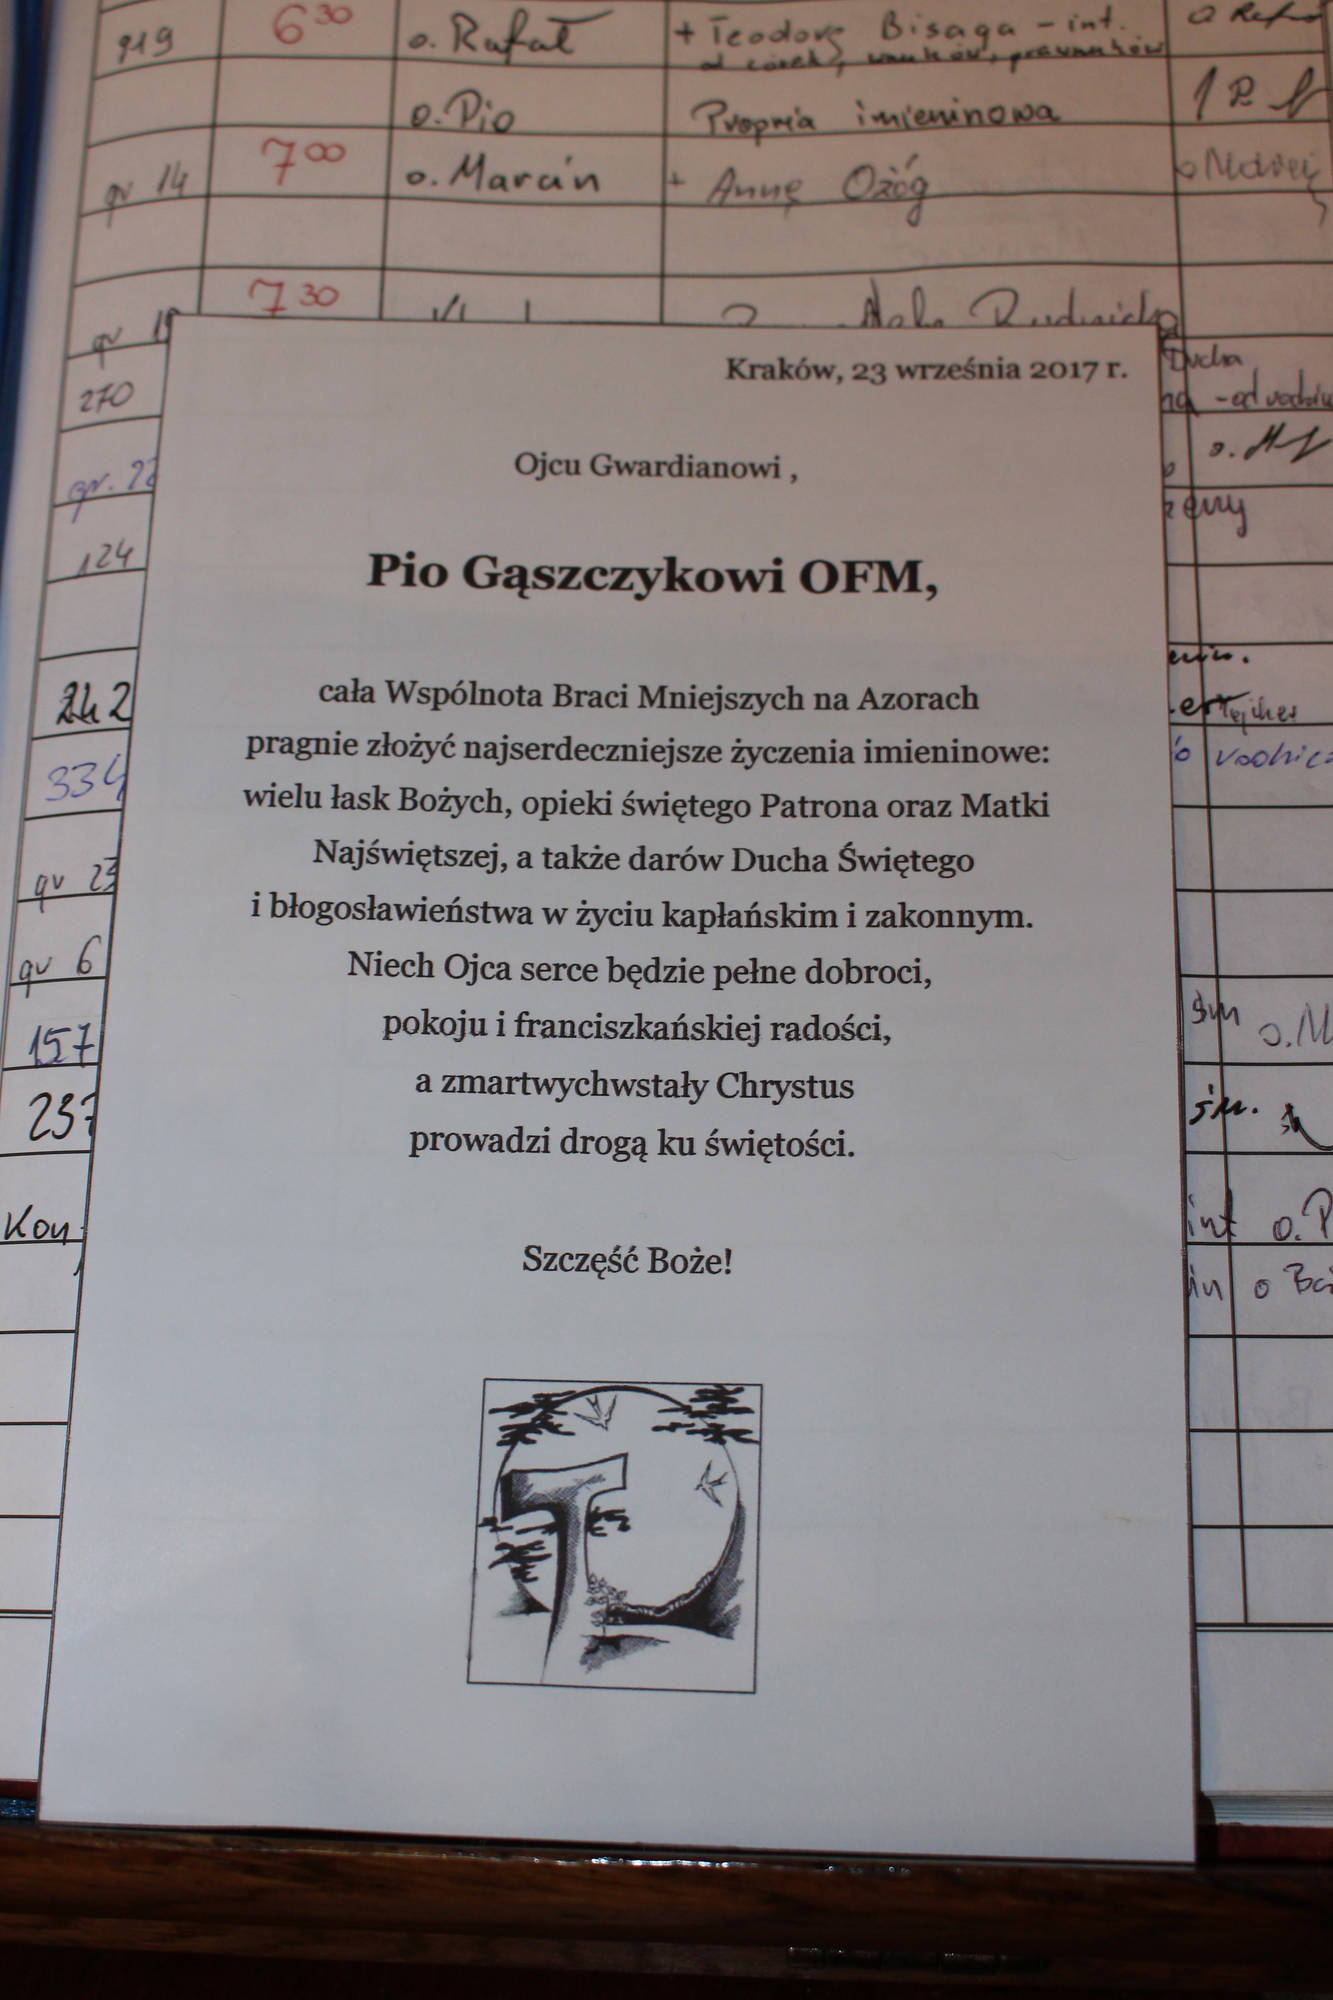 919 6³⁰ o. Rafał + Teodorę Bisaga - int.
od córek, wnuków, prawnuków
o. Pio Propria imieninowa
gr 14 7⁰⁰ o. Marcin + Annę Ożóg
gr 19 7³⁰
270
124
242
334
gr 23
gr 6
157
237
Kon
Ducha
- od rodzin
int o. P
Kraków, 23 września 2017 r.
Ojcu Gwardianowi ,
Pio Gąszczykowi OFM,
cała Wspólnota Braci Mniejszych na Azorach
pragnie złożyć najserdeczniejsze życzenia imieninowe:
wielu łask Bożych, opieki świętego Patrona oraz Matki
Najświętszej, a także darów Ducha Świętego
i błogosławieństwa w życiu kapłańskim i zakonnym.
Niech Ojca serce będzie pełne dobroci,
pokoju i franciszkańskiej radości,
a zmartwychwstały Chrystus
prowadzi drogą ku świętości.
Szczęść Boże!